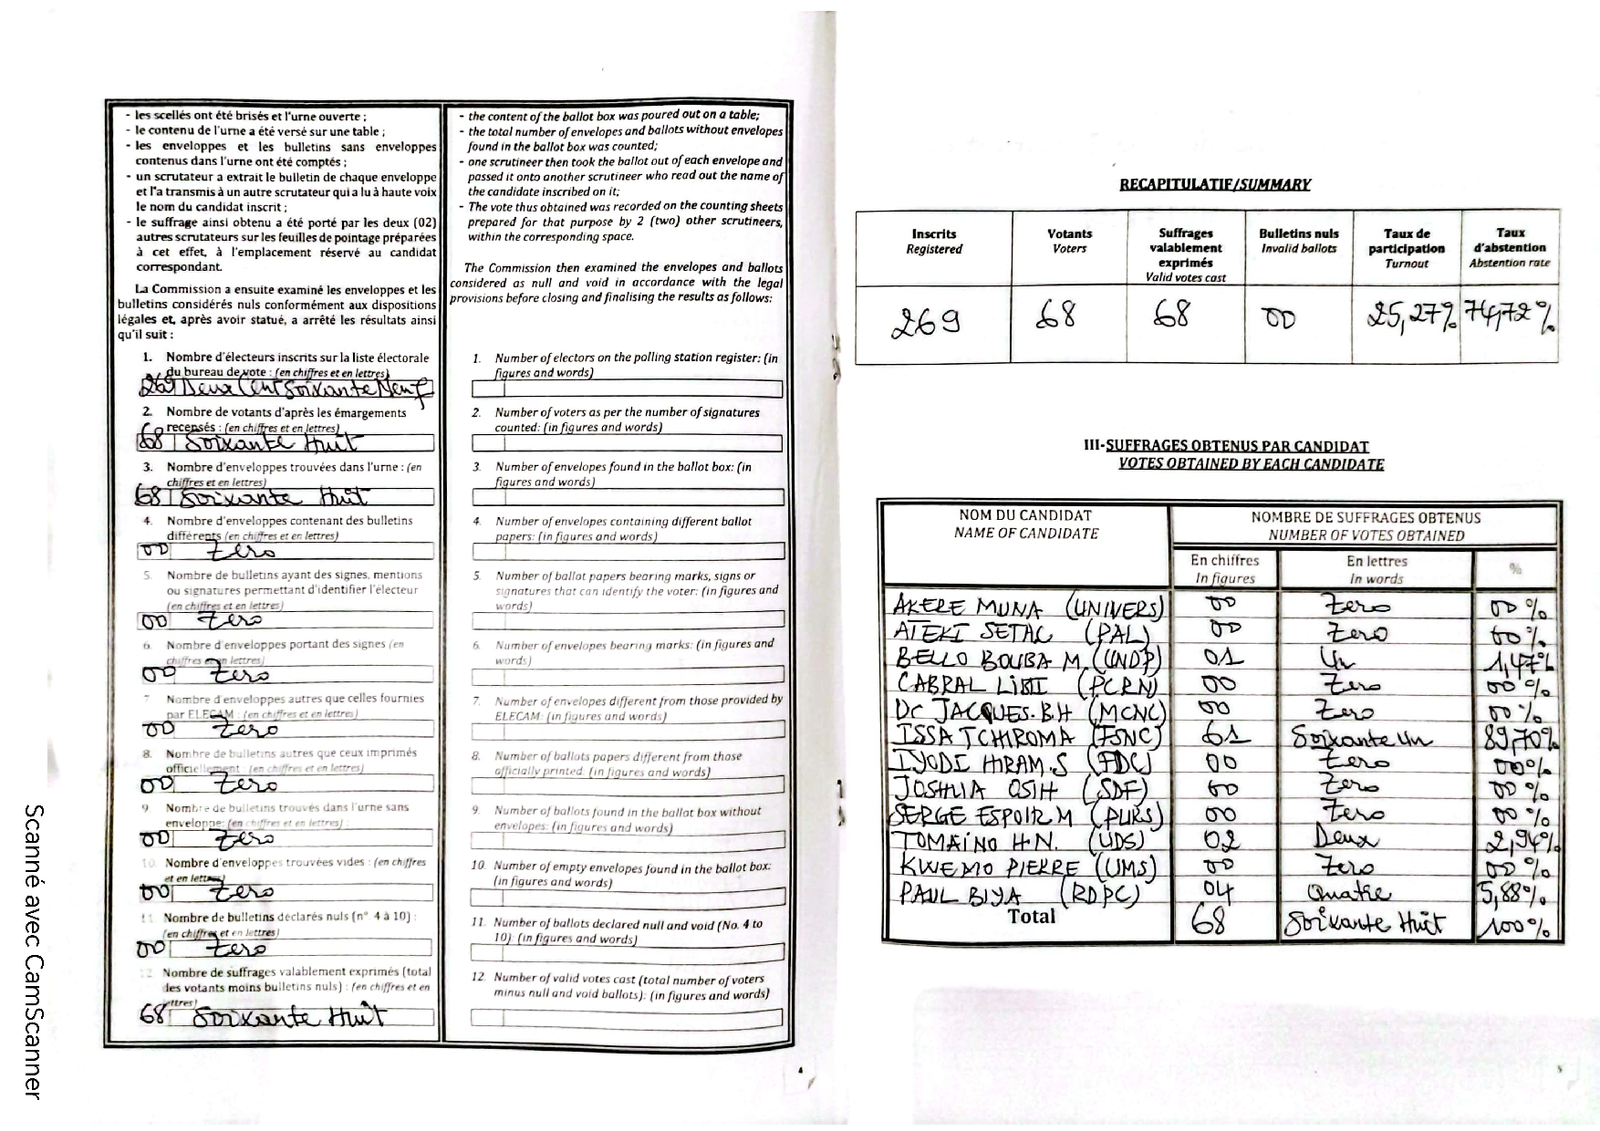 - les scellés ont été brisés et l'urne ouverte ;
- le contenu de l'urne a été versé sur une table ;
- les enveloppes et les bulletins sans enveloppes
contenus dans l'urne ont été comptés ;
- un scrutateur a extrait le bulletin de chaque enveloppe
et l'a transmis à un autre scrutateur qui a lu à haute voix
le nom du candidat inscrit ;
- le suffrage ainsi obtenu a été porté par les deux (02)
autres scrutateurs sur les feuilles de pointage préparées
à cet effet, à l'emplacement réservé au candidat
correspondant.
La Commission a ensuite examiné les enveloppes et les
bulletins considérés nuls conformément aux dispositions
légales et, après avoir statué, a arrêté les résultats ainsi
qu'il suit :
1. Nombre d'électeurs inscrits sur la liste électorale
du bureau de vote : (en chiffres et en lettres)
269 Deux Cent Soixante Neuf
2. Nombre de votants d'après les émargements
recensés : (en chiffres et en lettres)
68 Soixante Huit
3. Nombre d'enveloppes trouvées dans l'urne : (en
chiffres et en lettres)
68 Soixante Huit
4. Nombre d'enveloppes contenant des bulletins
différents (en chiffres et en lettres)
00 Zero
5. Nombre de bulletins ayant des signes, mentions
ou signatures permettant d'identifier l'électeur
(en chiffres et en lettres)
00 Zero
6. Nombre d'enveloppes portant des signes (en
chiffres et en lettres)
00 Zero
7 Nombre d'enveloppes autres que celles fournies
par ELECAM : (en chiffres et en lettres)
00 Zero
8. Nombre de bulletins autres que ceux imprimés
officiellement (en chiffres et en lettres)
00 Zero
9 Nombre de bulletins trouvés dans l'urne sans
enveloppe: (en chiffres et en lettres) :
00 Zero
10. Nombre d'enveloppes trouvées vides : (en chiffres
et en lettres)
00 Zero
11 Nombre de bulletins déclarés nuls (n° 4 à 10) :
(en chiffres et en lettres)
00 Zero
12 Nombre de suffrages valablement exprimés (total
des votants moins bulletins nuls) : (en chiffres et en
lettres)
68 Soixante Huit
- the content of the ballot box was poured out on a table;
- the total number of envelopes and ballots without envelopes
found in the ballot box was counted;
- one scrutineer then took the ballot out of each envelope and
passed it onto another scrutineer who read out the name of
the candidate inscribed on it;
- The vote thus obtained was recorded on the counting sheets
prepared for that purpose by 2 (two) other scrutineers,
within the corresponding space.
The Commission then examined the envelopes and ballots
considered as null and void in accordance with the legal
provisions before closing and finalising the results as follows:
1. Number of electors on the polling station register: (in
figures and words)
2. Number of voters as per the number of signatures
counted: (in figures and words)
3. Number of envelopes found in the ballot box: (in
figures and words)
4. Number of envelopes containing different ballot
papers: (in figures and words)
5. Number of ballot papers bearing marks, signs or
signatures that can identify the voter: (in figures and
words)
6. Number of envelopes bearing marks: (in figures and
words)
7. Number of envelopes different from those provided by
ELECAM: (in figures and words)
8. Number of ballots papers different from those
officially printed: (in figures and words)
9. Number of ballots found in the ballot box without
envelopes: (in figures and words)
10. Number of empty envelopes found in the ballot box:
(in figures and words)
11. Number of ballots declared null and void (No. 4 to
10): (in figures and words)
12. Number of valid votes cast (total number of voters
minus null and void ballots): (in figures and words)
4
RECAPITULATIF/SUMMARY
Inscrits Registered | Votants Voters | Suffrages valablement exprimés Valid votes cast | Bulletins nuls Invalid ballots | Taux de participation Turnout | Taux d'abstention Abstention rate
269 68 68 00 25,27% 74,72%
III-SUFFRAGES OBTENUS PAR CANDIDAT
VOTES OBTAINED BY EACH CANDIDATE
NOM DU CANDIDAT NOMBRE DE SUFFRAGES OBTENUS
NAME OF CANDIDATE NUMBER OF VOTES OBTAINED
En chiffres En lettres %
In figures In words
AKERE MUNA (UNIVERS) 00 Zero 00%
ATEKI SETAC (PAL) 00 Zero 00%
BELLO BOUBA M. (UNDP) 01 Un 1,47%
CABRAL LIBII (PCRN) 00 Zero 00%
DC JACQUES.B.H (MCNC) 00 Zero 00%
ISSA TCHIROMA (FSNC) 61 Soixante Un 89,70%
IYODI HIRAM.S (FDC) 00 Zero 00%
JOSHUA OSIH (SDF) 00 Zero 00%
SERGE ESPOIR M (PURS) 00 Zero 00%
TOMAINO H.N. (UDS) 02 Deux 2,94%
KWEMO PIERRE (UMS) 00 Zero 00%
PAUL BIYA (RDPC) 04 Quatre 5,88%
Total 68 Soixante Huit 100%
Scanné avec CamScanner